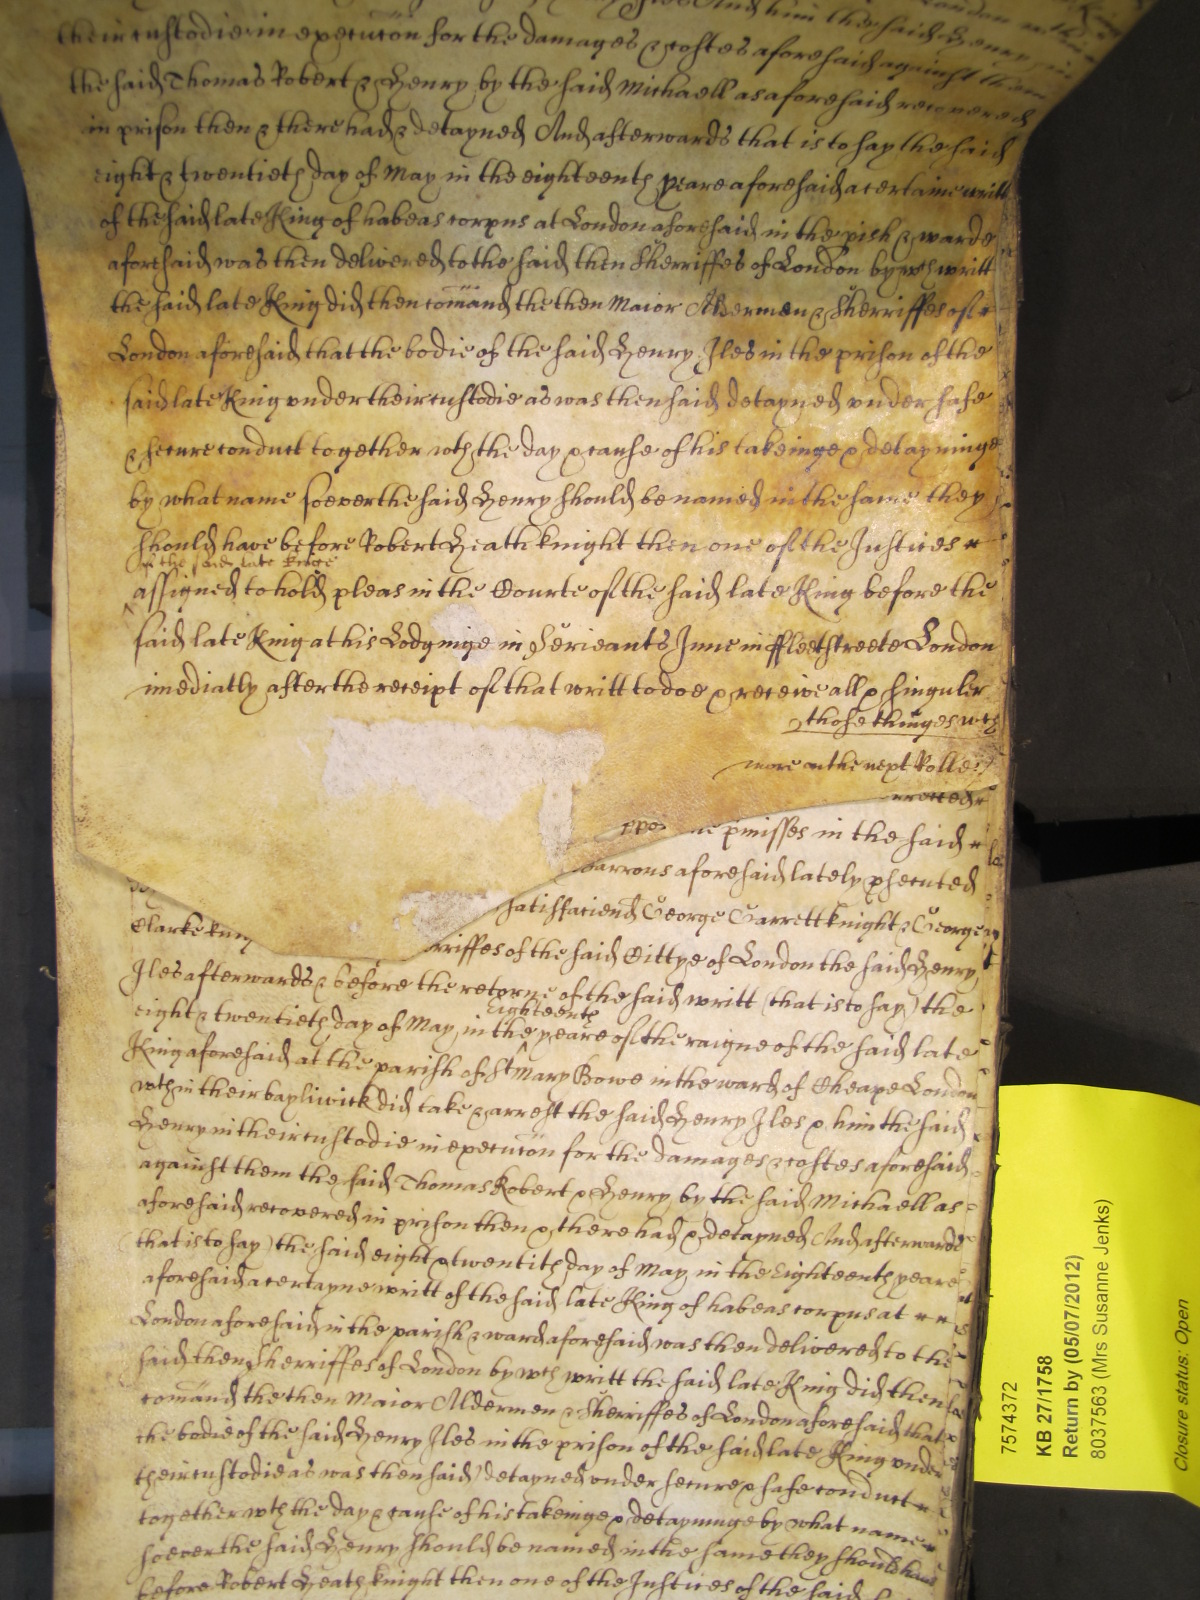 their custodie in execucon for the damages & costes aforesaid against them
the said Thomas Robert & Henry by the said Michaell as aforesaid recovered
in prison then & there had & detayned And afterwards that is to say the said
eight & twentieth day of May in the eighteenth yeare aforesaid a certaine writt
of the said late King of habeas corpus at London aforesaid in the pish & warde
aforesaid was then delivered to the said then Sherriffes of London by wch writt
the said late King did then comand the then Maior Aldermen & Sherriffes of
London aforesaid that the bodie of the said Henry Iles in the prison of the
said late King under their custodie as was then said detayned under safe
& secure conduct together wth the day & cause of his takeinge & detayninge
by what name soever the said Henry should be named in the same they
should have before Robert Heath knight then one of the Justices
of the said late Kinge
assigned to hold pleas in the Courte of the said late King before the
said late King at his Lodginge in Serieants Inne in ffleetstreete London
imediatly after the receipt of that writt to doe & receive all & singuler
those thinges wch
more on the next Rolle
pmisses in the said
aforesaid lately psecuted
satisfaciend George Garrett knight & George
Clarke knig rriffes of the said Cittye of London the said Henry
Iles afterwards & before the retorne of the said writt (that is to say) the
eighteenth
eight & twentieth day of May in the yeare of the raigne of the said late
King aforesaid at the parish of St Mary Bowe in the ward of Cheape London
wthin their bayliwick did take & arrest the said Henry Iles & him the said
Henry in their custodie in execucon for the damages & costes aforesaid
against them the said Thomas Robert & Henry by the said Michaell as
aforesaid recovered in prison then & there had & detayned And afterwards
that is to say) the said eight & twentith day of May in the Eighteenth yeare
aforesaid a certayne writt of the said late King of habeas corpus at
London aforesaid in the parish & ward aforesaid was then delivered to the
said then Sherriffes of London by wch writt the said late King did then
comand the then Maior Aldermen & Sherriffes of London aforesaid that
the bodie of the said Henry Iles in the prison of the said late King under
their custodie as was then said detayned under secure & safe conduct
together wth the day & cause of his takeinge & detayninge by what name
soever the said Henry should be named in the same they should have
before Robert Heath knight then one of the Justices of the said
7574372
KB 27/1758
Return by (05/07/2012)
8037563 (Mrs Susanne Jenks)
Closure status: Open